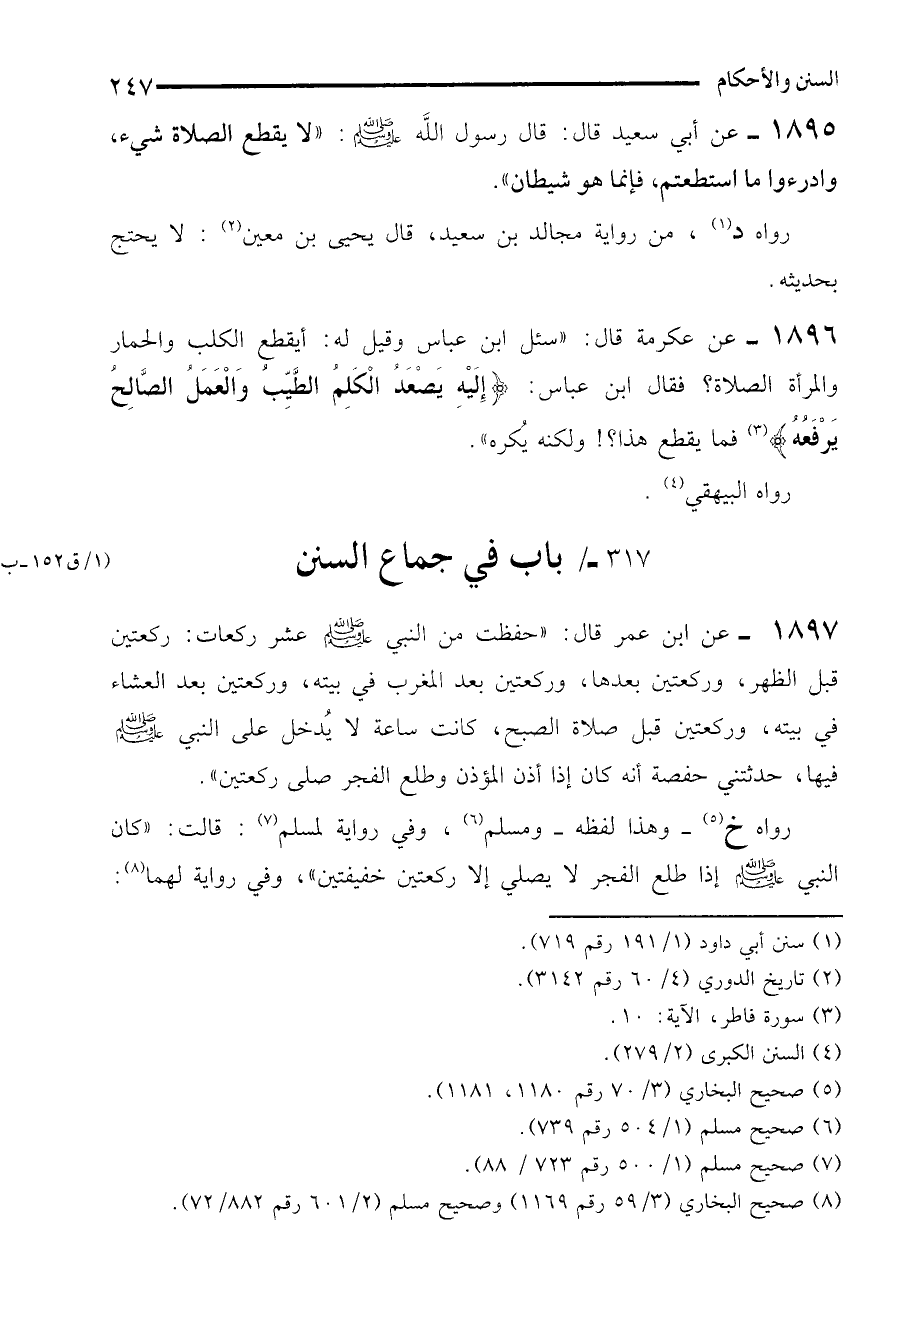 السنن والأحكام ٢٤٧
١٨٩٥ ـ عن أبي سعيد قال: قال رسول اللَّه ﷺ : «لا يقطع الصلاة شيء،
وادرءوا ما استطعتم، فإنما هو شيطان».
رواه د(١) ، من رواية مجالد بن سعيد، قال يحيى بن معين(٢) : لا يحتج
بحديثه .
١٨٩٦ ـ عن عكرمة قال: «سئل ابن عباس وقيل له: أيقطع الكلب والحمار
والمرأة الصلاة؟ فقال ابن عباس: ﴿إِلَيْهِ يَصْعَدُ الْكَلِمُ الطَّيِّبُ وَالْعَمَلُ الصَّالِحُ
يَرْفَعُهُ﴾(٣) فما يقطع هذا؟! ولكنه يُكره».
رواه البيهقي(٤) .
٣١٧ ـ/ باب في جماع السنن (١/ق١٥٢-ب
١٨٩٧ ـ عن ابن عمر قال: «حفظت من النبي ﷺ عشر ركعات: ركعتين
قبل الظهر، وركعتين بعدها، وركعتين بعد المغرب في بيته، وركعتين بعد العشاء
في بيته، وركعتين قبل صلاة الصبح، كانت ساعة لا يُدخل على النبي ﷺ
فيها، حدثتني حفصة أنه كان إذا أذن المؤذن وطلع الفجر صلى ركعتين».
رواه خ(٥) ـ وهذا لفظه ـ ومسلم(٦) ، وفي رواية لمسلم(٧) : قالت: «كان
النبي ﷺ إذا طلع الفجر لا يصلي إلا ركعتين خفيفتين»، وفي رواية لهما(٨):
(١) سنن أبي داود (١/ ١٩١ رقم ٧١٩).
(٢) تاريخ الدوري (٤/ ٦٠ رقم ٣١٤٢).
(٣) سورة فاطر، الآية: ١٠.
(٤) السنن الكبرى (٢/ ٢٧٩).
(٥) صحيح البخاري (٣/ ٧٠ رقم ١١٨٠، ١١٨١).
(٦) صحيح مسلم (١/ ٥٠٤ رقم ٧٣٩).
(٧) صحيح مسلم (١/ ٥٠٠ رقم ٧٢٣ / ٨٨).
(٨) صحيح البخاري (٣/ ٥٩ رقم ١١٦٩) وصحيح مسلم (٢/ ٦٠١ رقم ٨٨٢/ ٧٢).